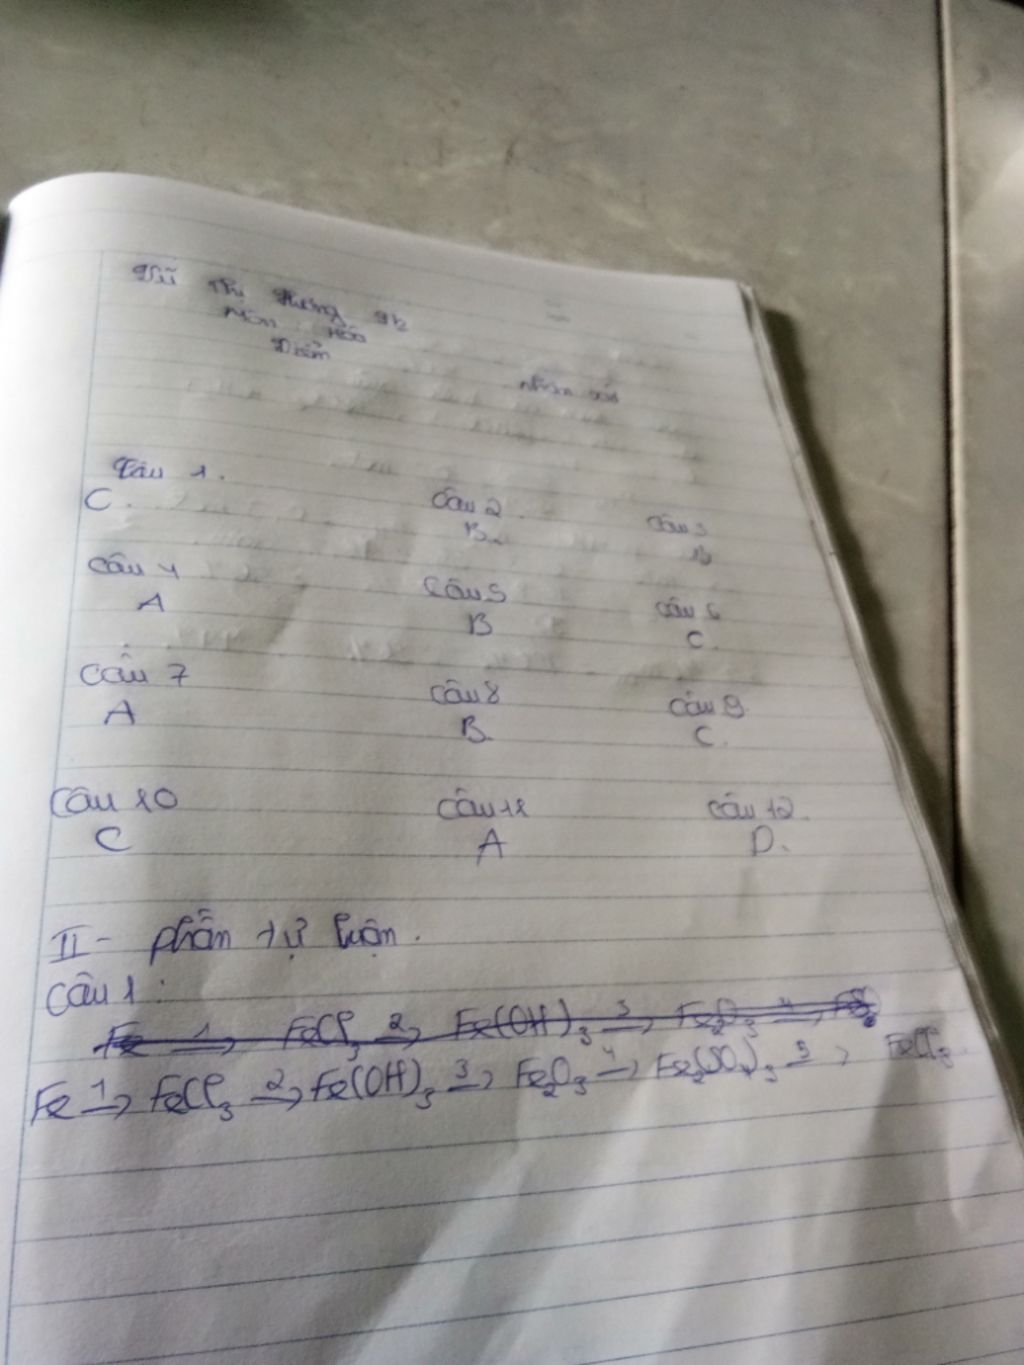 Vũ Thu Hương 9k2
Môn Hóa
Điểm
nhận xét
Câu 1.
C.
Câu 2
B.
Câu 3
B
Câu 4
A
Câu 5
B
Câu 6
C.
Câu 7
A
Câu 8
B
Câu 9
C.
Câu 10
C
Câu 11
A
Câu 12.
D.
II- phần tự luận.
Câu 1:
Fe 1→ FeCl3 2→ Fe(OH)3 3→ Fe2O3 4→
Fe 1→ FeCl3 2→ Fe(OH)3 3→ Fe2O3 4→ Fe2(SO4)3 5→ FeCl3.